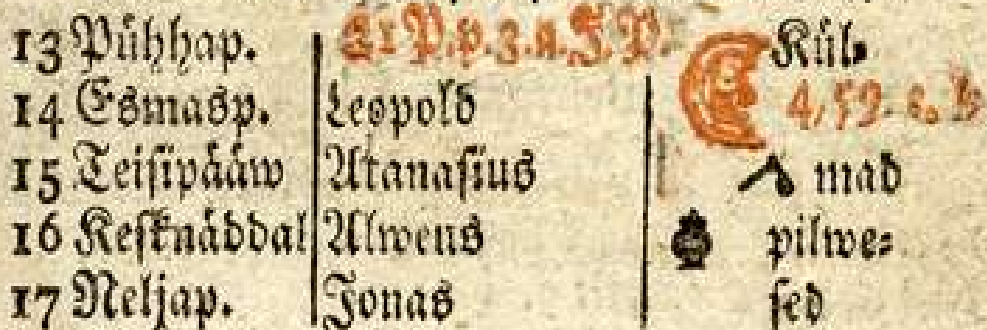 13 Pühhap. 21 P. p. 3. a. J. P. Kül-
14 Esmasp. Leopold 4, 59. e. L
15 Teisipääw Atanasius mad
16 Kesknäddal Alwens pilwe-
17 Neljap. Jonas sed